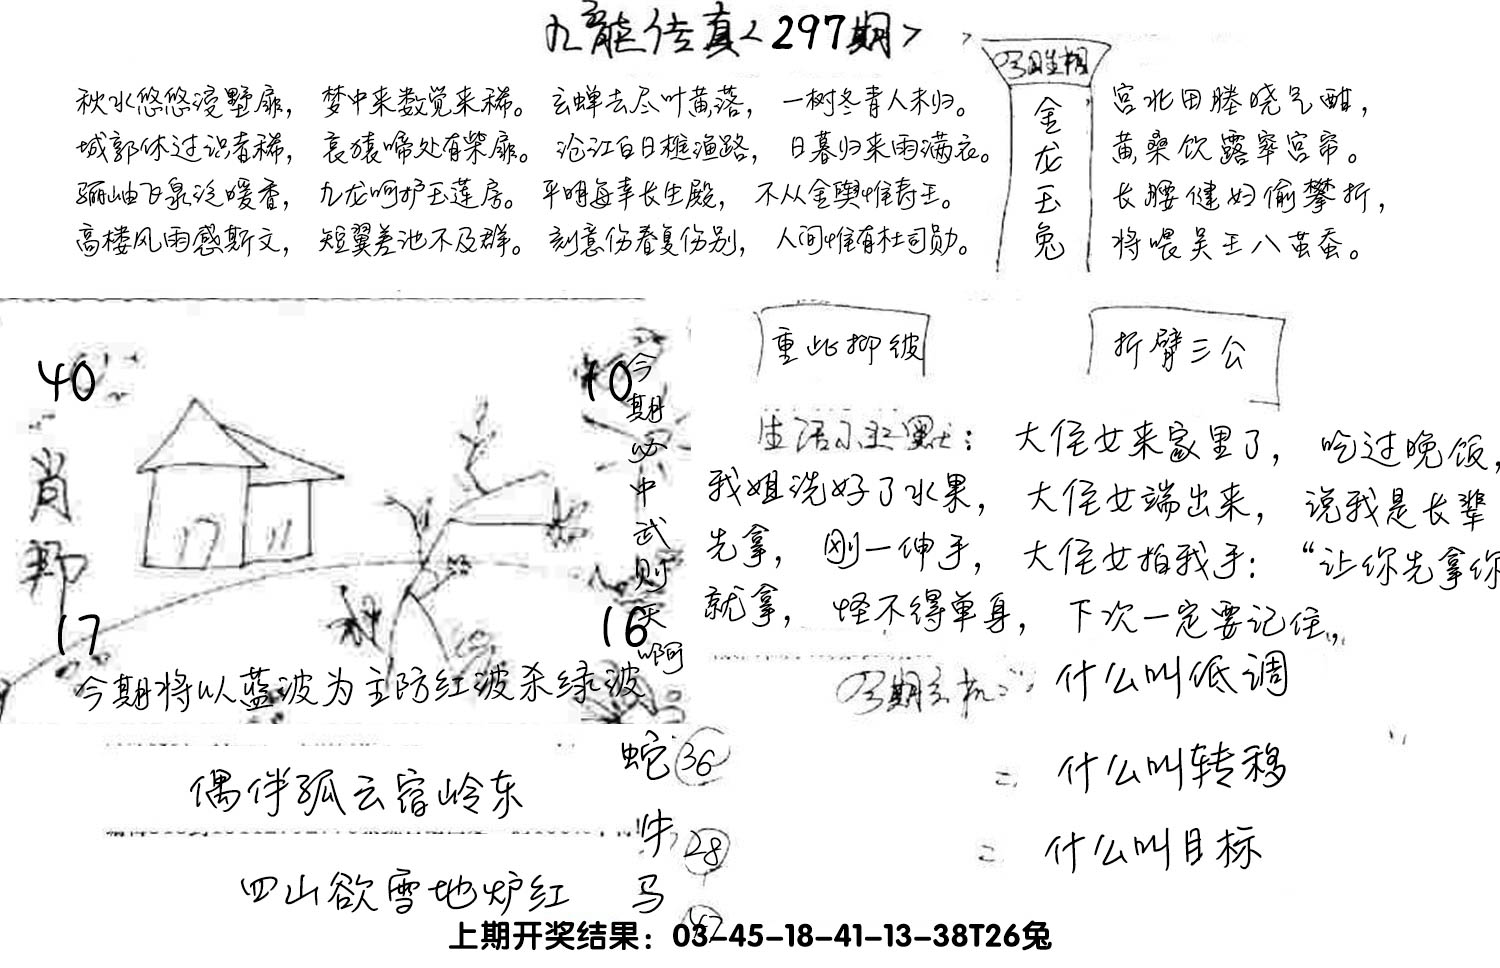 九龙传真<297期>
今日生相
金龙玉兔
秋水悠悠浸墅扉，梦中来数觉来稀。玄蝉去尽叶黄落，一树冬青人未归。
城郭休过识者稀，哀猿啼处有柴扉。沧江白日樵渔路，日暮归来雨满衣。
骊岫飞泉泛暖香，九龙呵护玉莲房。平明每幸长生殿，不从金舆惟寿王。
高楼风雨感斯文，短翼差池不及群。刻意伤春复伤别，人间惟有杜司勋。
宫北田塍晓气酣，
黄桑饮露窣宫帘。
长腰健妇偷攀折，
将喂吴王八茧蚕。
40
10
肖
17
16
今期必中武则天啊
今期将以蓝波为主防红波杀绿波
重此抑彼
折臂三公
生活小幽默：大侄女来家里了，吃过晚饭，
我姐洗好了水果，大侄女端出来，说我是长辈
先拿，刚一伸手，大侄女拍我手：“让你先拿你
就拿，怪不得单身，下次一定要记住„
今期玄机
什么叫低调
二
什么叫转移
二
什么叫目标
偶伴孤云宿岭东
四山欲雪地炉红
蛇 36
牛 28
马
上期开奖结果：03-45-18-41-13-38T26兔